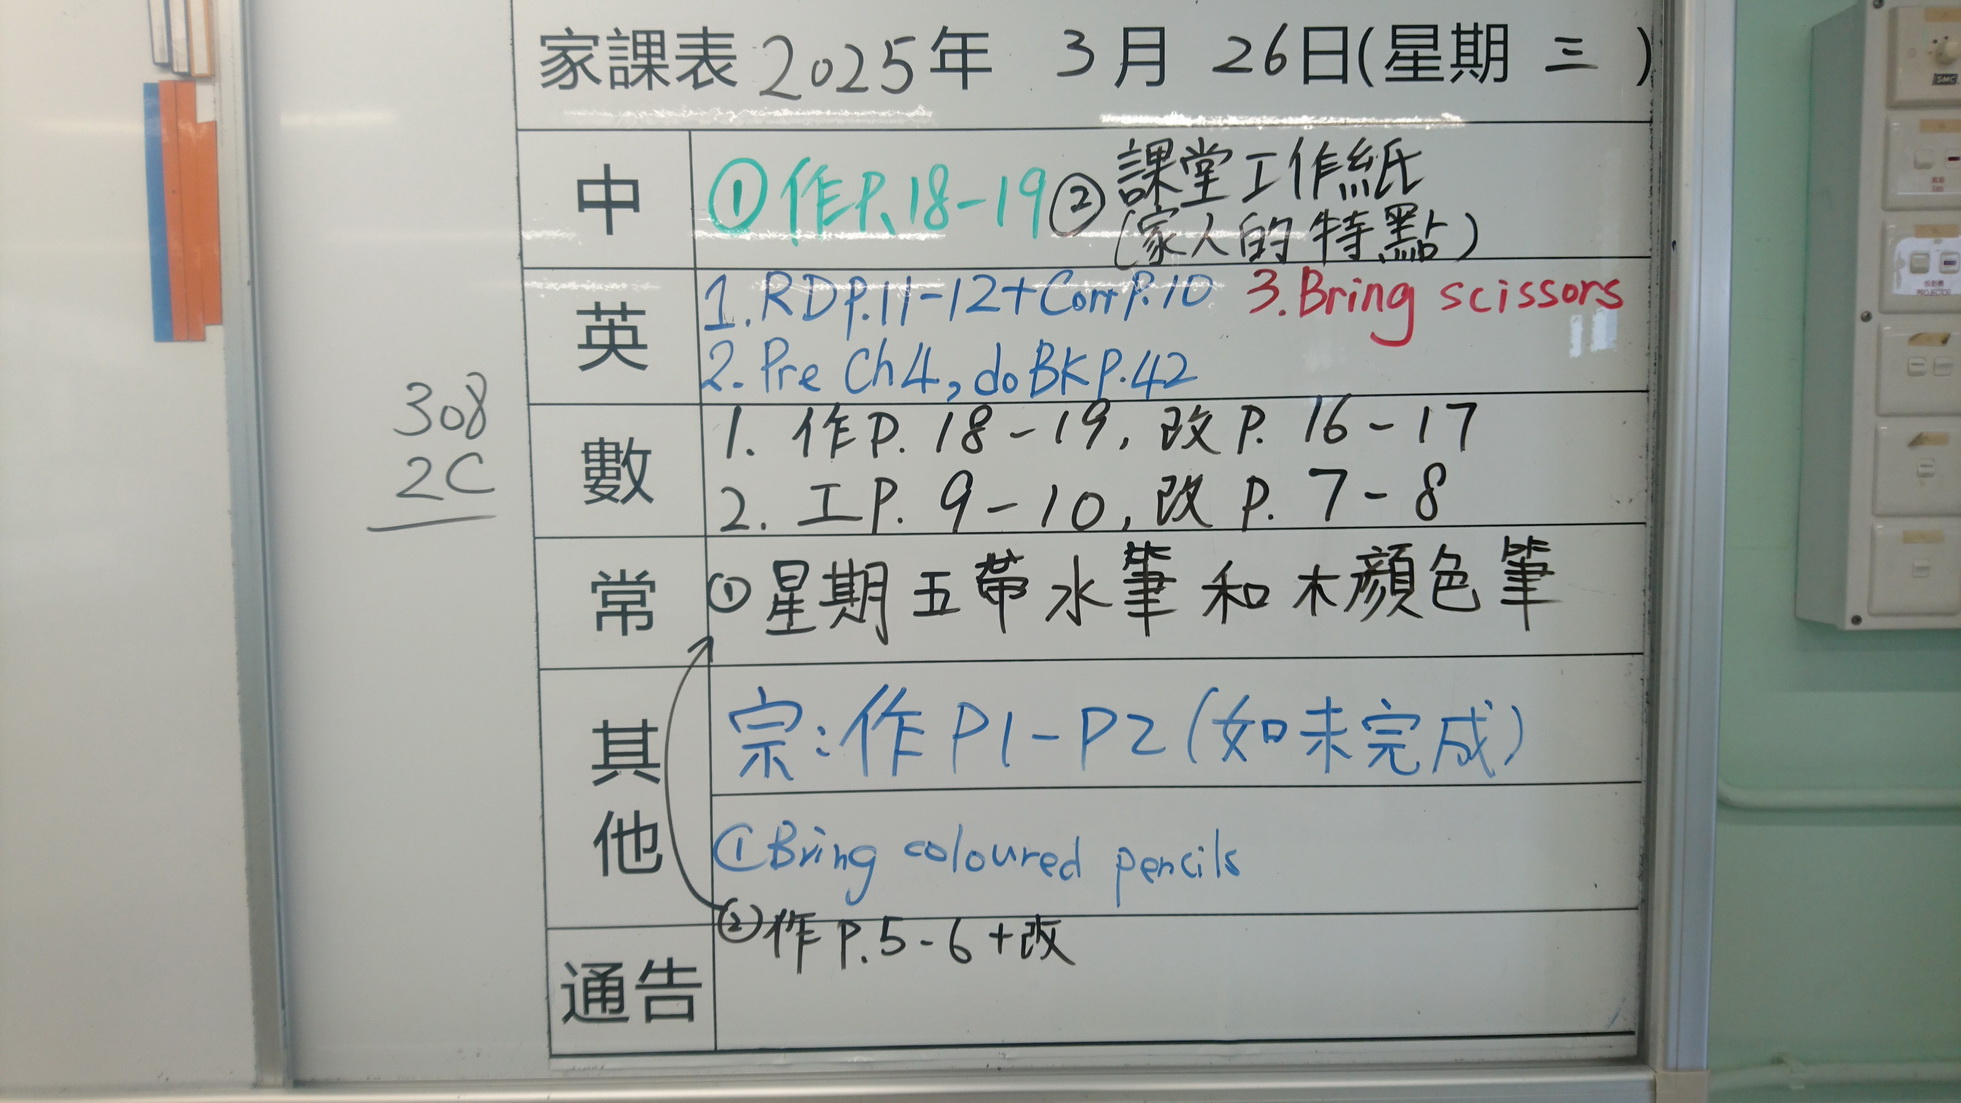 家課表 2025年 3月 26日(星期 三 )
中
①作P.18-19 ②課堂工作紙
(家人的特點)
英
1. RD P.11-12+Corr P.10 3. Bring scissors
2. Pre Ch4, do BK P.42
308
2C
數
1. 作P. 18-19, 改P. 16-17
2. 工P. 9-10, 改P. 7-8
常
①星期五帶水筆和木顏色筆
其他
宗:作P1-P2(如未完成)
①Bring coloured pencils
②作P.5-6+改
通告